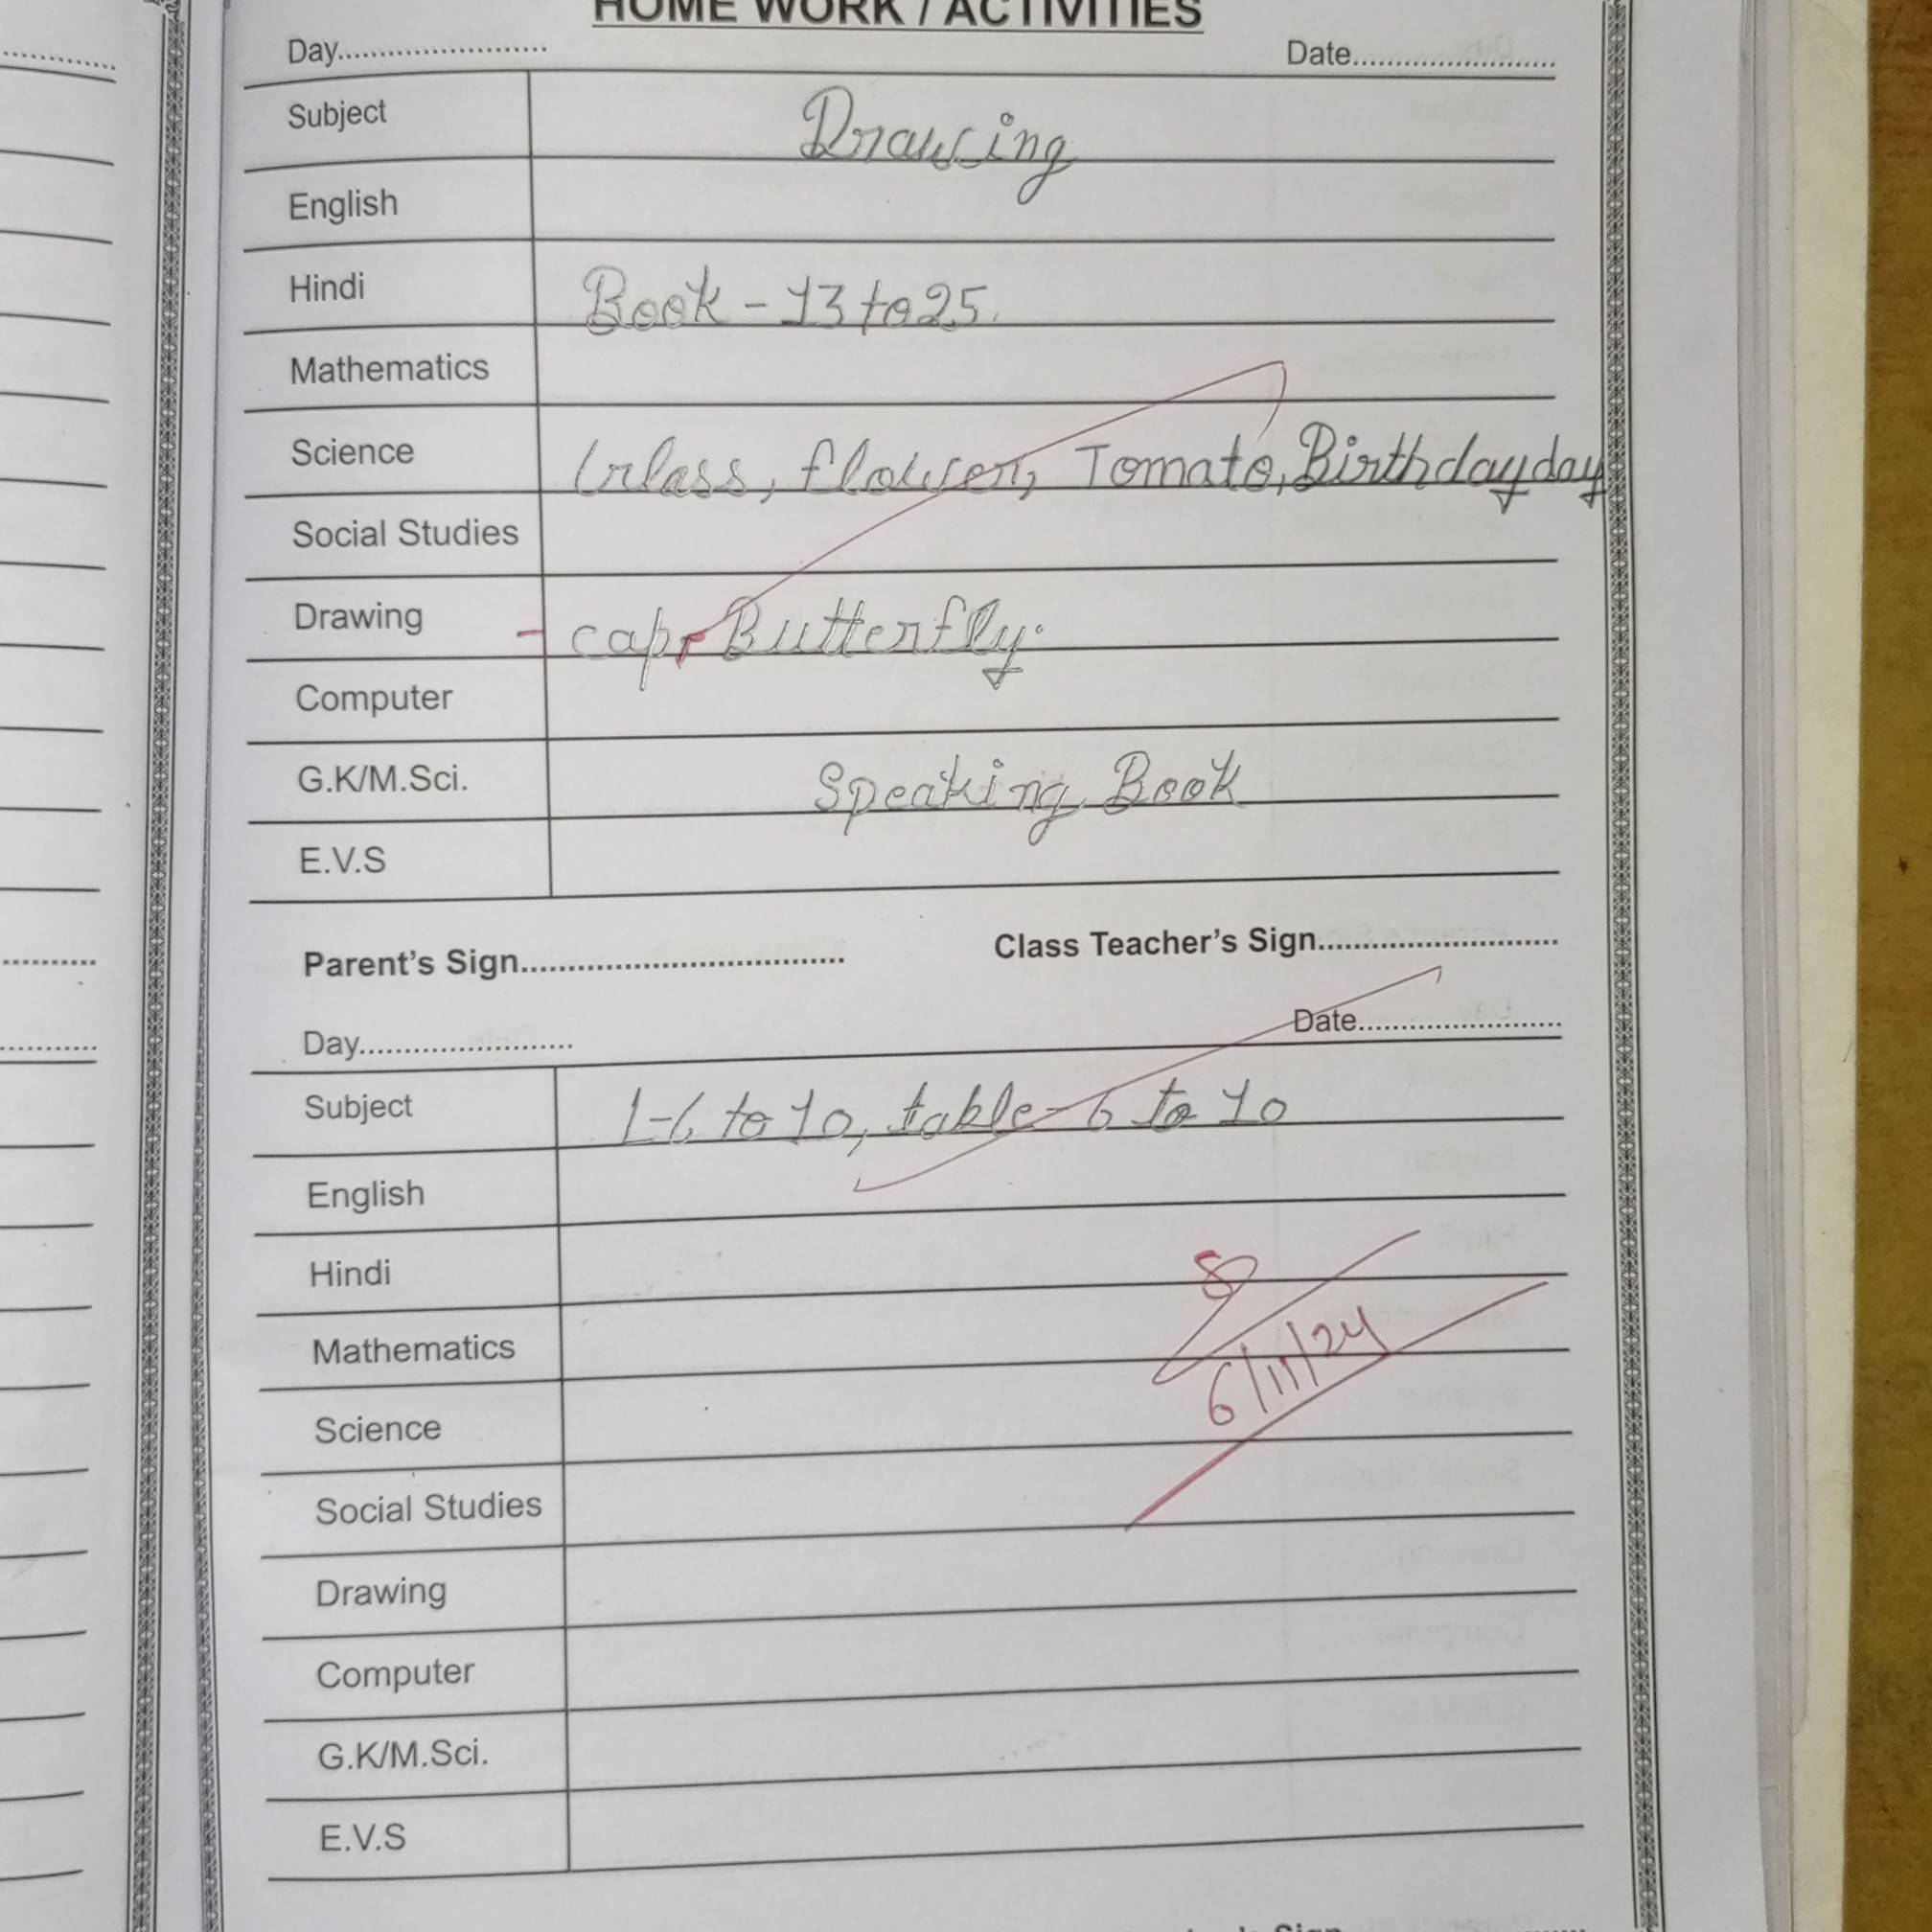 HOME WORK / ACTIVITIES
Day........................ Date........................
Subject Drawing
English
Hindi Book - 13 to 25.
Mathematics
Science Glass, flower, Tomato, Birthdayday
Social Studies
Drawing - cap, Butterfly.
Computer
G.K/M.Sci. Speaking Book
E.V.S
Parent's Sign.................................. Class Teacher's Sign..........................
Day........................ Date........................
Subject L-6 to 10, table-6 to 10
English
Hindi
Mathematics
6/11/24
Science
Social Studies
Drawing
Computer
G.K/M.Sci.
E.V.S